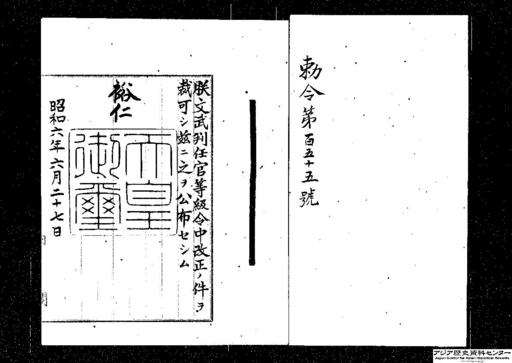 勅令第百五十五號
朕文武判任官等級令中改正ノ件ヲ
裁可シ茲ニ之ヲ公布セシム
裕仁
天皇
御璽
昭和六年六月二十七日
アジア歴史資料センター
Japan Center for Asian Historical Records